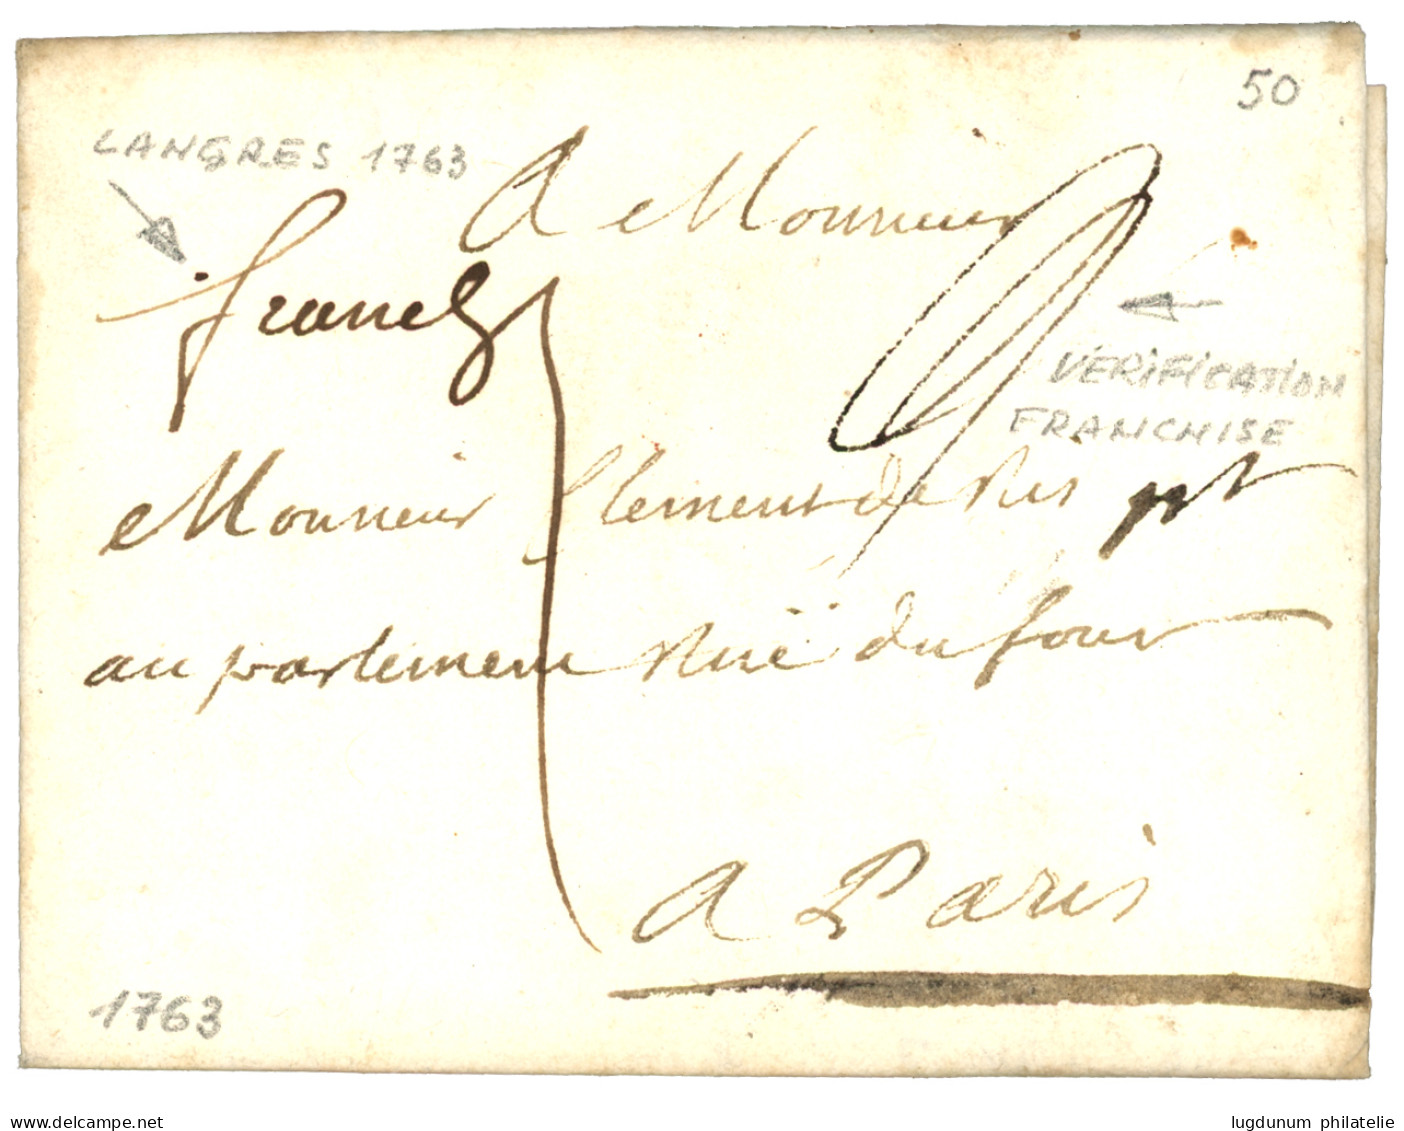 50
LANGRES 1763
A Monsieur
franche
VÉRIFICATION
FRANCHISE
Monsieur Clement de Ris
au parlement Rüe du four
A Paris
1763
www.delcampe.net
lugdunum philatelie